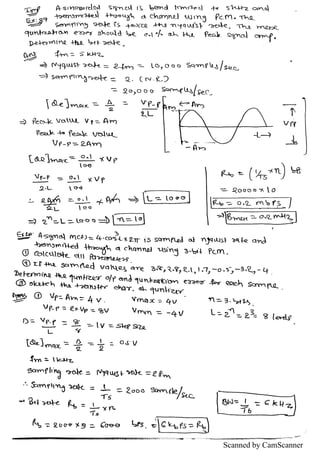 Imp
Ex:89
A sinusoidal signal is band limited to 5kHz and
transmitted through a channel using PCM. The
sampling rate is twice the nyquist rate. The max
quantisation error should be 0.1% of the peak signal amp.
Determine the bit rate.
Ans fm = 5 kHz
⇒ Nyquist rate = 2fm = 10,000 Samples/sec
⇒ sampling rate = 2. (N.R)
= 20,000 samples/sec.
[Qe]max = Δ/2 = VP-P/2L
⇒ Peak value VP = Am
Peak to Peak value
VP-P = 2Am
[Qe]max = 0.1/100 x VP
VP-P/2.L = 0.1/100 x VP
2Am/2L = 0.1/100 x Am ⇒ L = 1000
⇒ 2^n = L = 1000 ⇒ n = 10
Am
-Am
VPP
Rb = (1/Ts x n) bps
= 20000 x 10
Rb = 0.2 mbps
⇒ Bmin = 0.2 mHz
A signal m(t) = 4 cos is sampled at nyquist rate and
transmitted through a channel using 3-bit PCM.
① Calculate all parameters
② If the sampled values are 3.8, 2.1, 1.7, -0.5, -3.2, -4
Determine the quantizer o/p and quantisation error for each sample.
③ sketch the transfer char. of quantizer
① VP = Am = 4 V. Vmax = 4V n = 3-bits.
VP.P = 2×VP = 8V Vmin = -4V L = 2^n = 2^3 = 8 levels
Δ = VP.P/L = 8/8 = 1V = Step size
[Qe]max = Δ/2 = 1/2 = 0.5 V
fm = 1kHz
Sampling rate = Nyquist rate = 2fm
∴ Sampling rate = 1/Ts = 2000 Sample/sec
- Bit rate Rb = 1/Ts x n
Rb = 2000 x 3 = 6000 bps. = 6 kbps = Rb
BW = 1/Ts = 6 kHz
Scanned by CamScanner